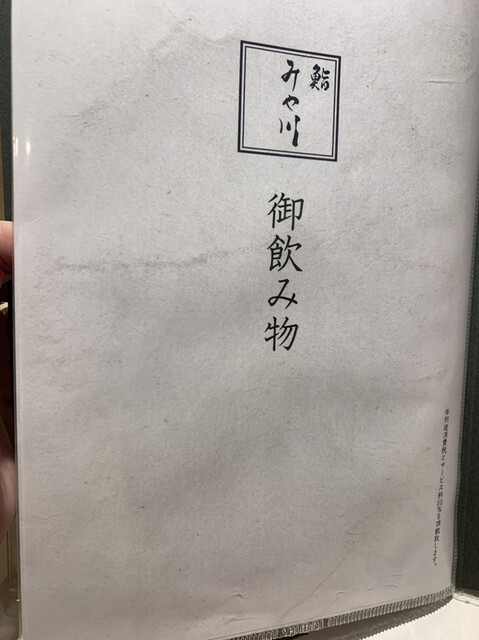 鮨
みや川
御飲み物
※別途消費税とサービス料10%を頂戴致します。